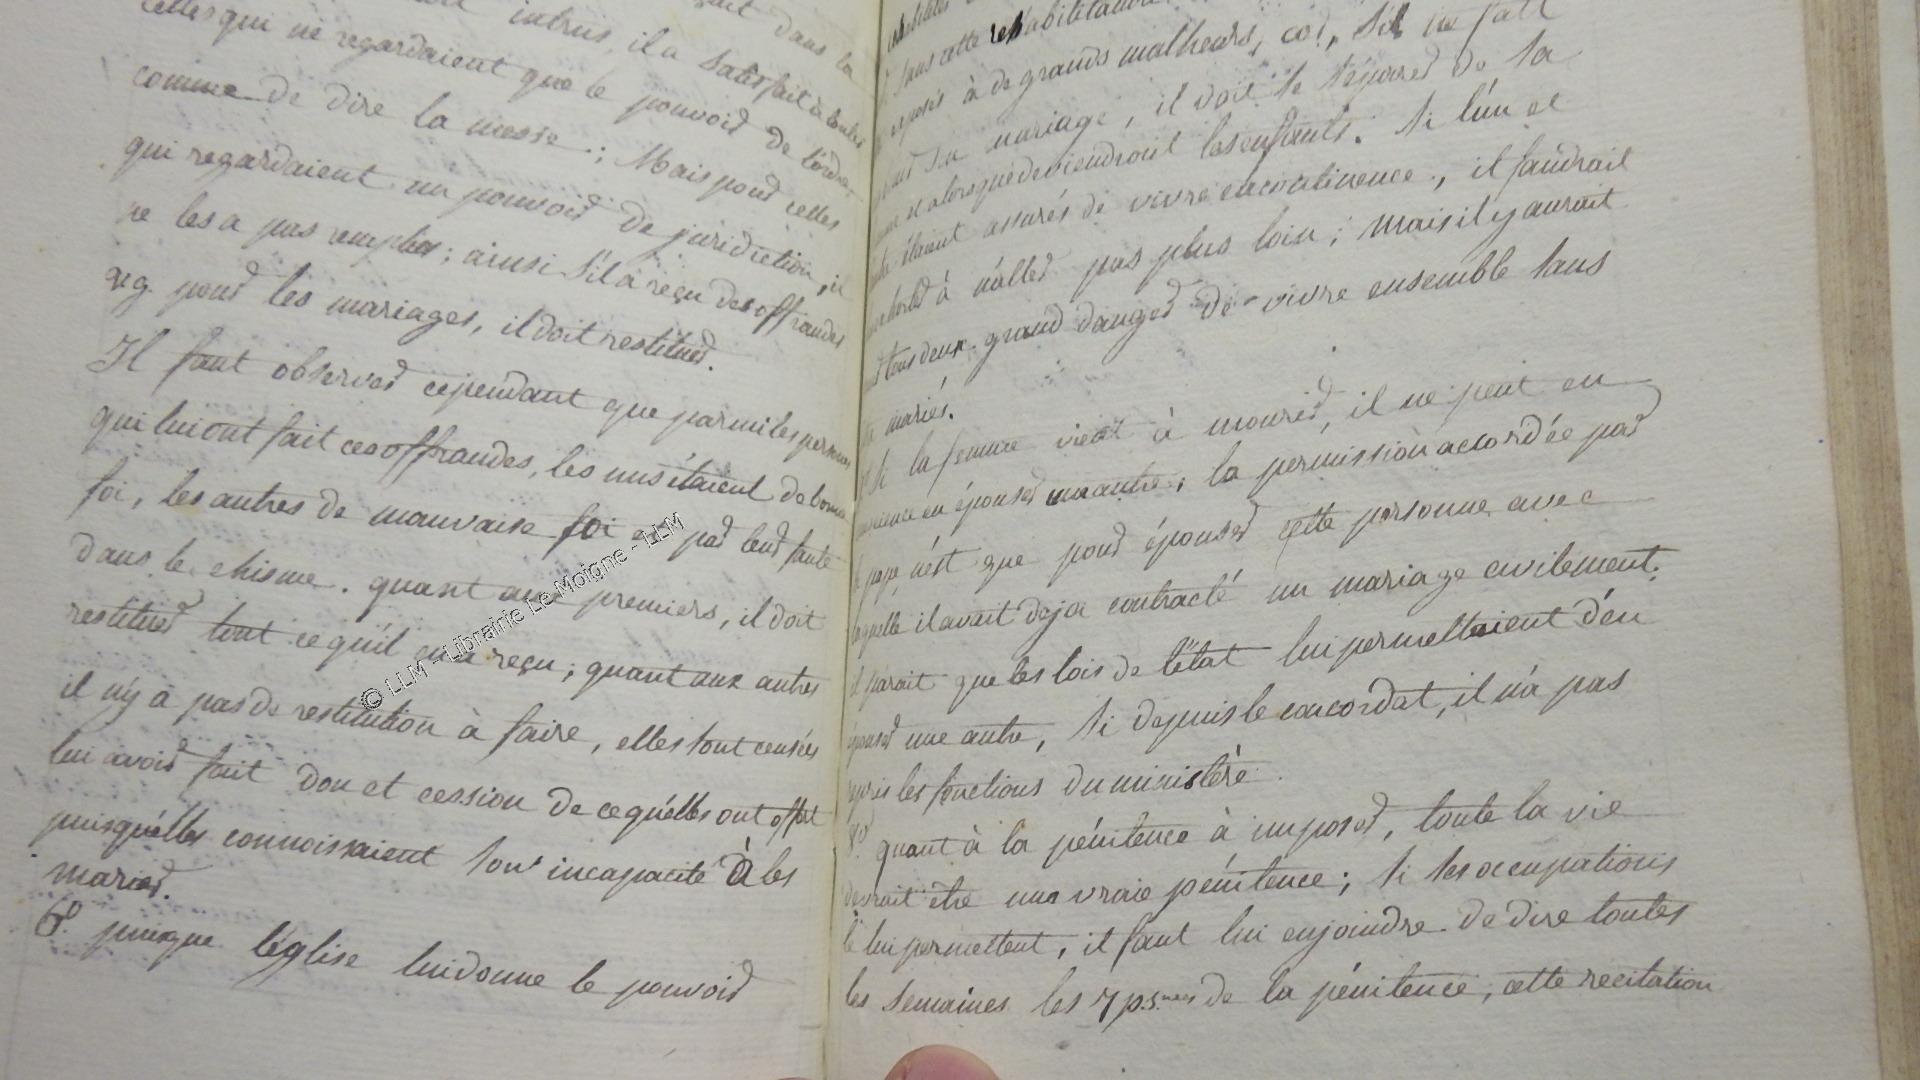 dans la
intrus, il a satisfait à toutes
celles qui ne regardaient que le pouvoir de l'ordre
comme de dire la messe; Mais pour celles
qui regardaient un pouvoir de juridiction, il
ne les a pas remplies; ainsi s'il a reçu des offrandes
v.g. pour les mariages, il doit restituer.
Il faut observer cependant que parmi les personnes
qui lui ont fait ces offrandes, les uns étaient de bonne
foi, les autres de mauvaise foi et par leur faute
dans le chisme. quant aux premiers, il doit
restituer tout ce qu'il en a reçu; quant aux autres
il n'y a pas de restitution à faire, elles sont censées
lui avoir fait don et cession de ce qu'elles ont offert
puisqu'elles connoissaient son incapacité à les
marier.
6.° puisque l'église lui donne le pouvoir
sans cette rehabilitation
exposés à de grands malheurs, car, s'il ne fait
mariage, il doit se séparer de sa
et alors que deviendront les enfants. Si l'un et
étaient assurés de vivre en continence, il faudrait
à n'aller pas plus loin; mais il y aurait
tous deux grand danger de vivre ensemble sans
mariés.
Si la femme vient à mourir, il ne peut en
conscience en épouser une autre; la permission accordée par
le pape n'est que pour épouser cette personne avec
laquelle il avait deja contracté un mariage civilement.
il parait que les lois de l'état lui permettaient d'en
épouser une autre, si depuis le concordat, il n'a pas
repris les fonctions du ministère.
8.° quant à la pénitence à imposer, toute la vie
devrait être une vraie pénitence; si ses occupations
le lui permettent, il faut lui enjoindre de dire toutes
les semaines les 7 ps.mes de la pénitence, cette recitation
© LLM - Librairie Le Moigne - LLM